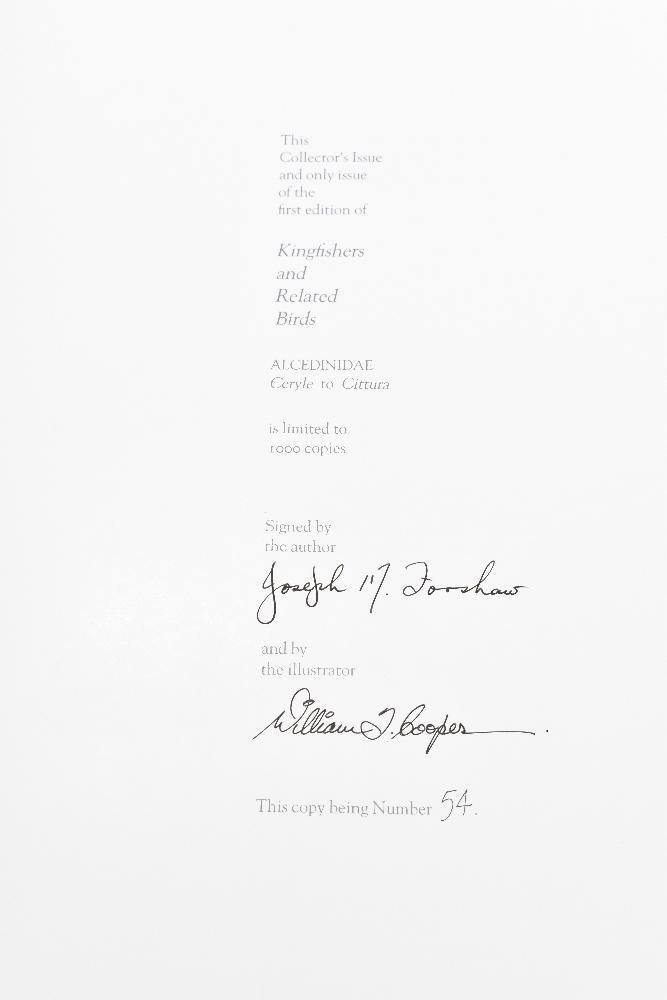 This
Collector's Issue
and only issue
of the
first edition of
Kingfishers
and
Related
Birds
ALCEDINIDAE
Ceryle to Cittura
is limited to
1000 copies
Signed by
the author
Joseph M. Forshaw
and by
the illustrator
William T. Cooper
This copy being Number 54.